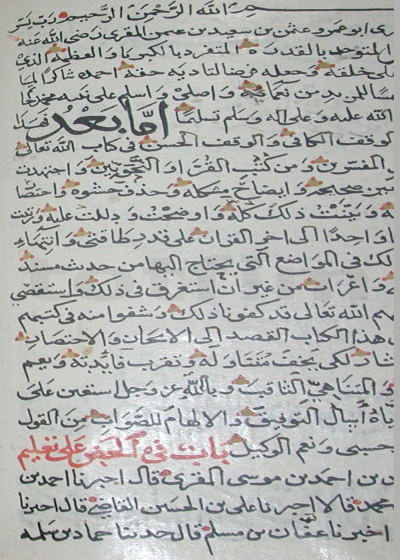 بسم الله الرحمن الرحيم
ابو عمرو عثمن بن سعيد بن عثمن المقرى رضي الله عنه
المتوحد بالقدرة المتفرد بالكبريا والعظمة الذي
على خلقه وجعله فرضا لتاديه حقه احمده شاكرا لما
للمزيد من نعمائه واصلي واسلم على نبيه محمد
الله عليه وعلى اله وسلم تسليما أما بعد فهذا
الوقف الكافي والوقف الحسن في كتاب الله تعالى
المفسرين ومن كتب القراء والنحويين واجتهدت
صحيحه وايضاح مشكله وحذف حشوه واختصار
وبينت ذلك كله واوضحت ودللت عليه ورتبت
واحدا الى اخر القران على قدر طاقتي وانتهاء
ذلك في المواضع التي يحتاج اليها من حديث مسند
من غير ان استغرق في ذلك واستقصي
الله تعالى قد كفونا ذلك وشفوا منه في كتبهم
هذا الكتاب القصد الى الايجاز والاختصار
لكي يخف متناوله وتقرب فايدته ويعم
المتناهي الثاقب وبالله عز وجل استعين على
اسال التوفيق والالهام للصواب من القول
حسبي ونعم الوكيل باب في الحض على تعليم
بن احمد بن موسى المقرى قال اخبرنا احمد بن
محمد قالا اخبرنا على بن الحسين القاضي قال اخبرنا
اخبرنا عفان بن مسلم قال حدثنا حماد بن سلمه